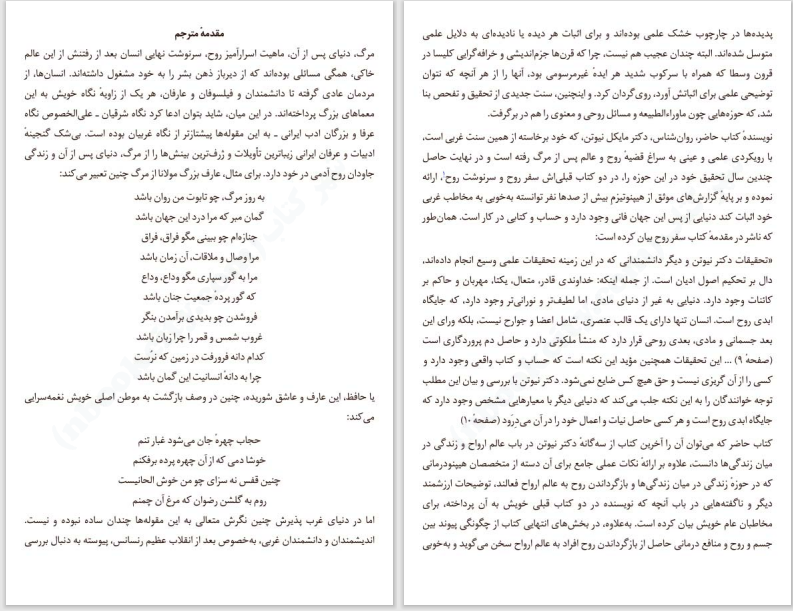 مقدمهٔ مترجم
مرگ، دنیای پس از آن، ماهیت اسرارآمیز روح، سرنوشت نهایی انسان بعد از رفتنش از این عالم
خاکی، همگی مسائلی بوده‌اند که از دیرباز ذهن بشر را به خود مشغول داشته‌اند. انسان‌ها، از
مردمان عادی گرفته تا دانشمندان و فیلسوفان و عارفان، هر یک از زاویهٔ نگاه خویش به این
معماهای بزرگ پرداخته‌اند. در این میان، شاید بتوان ادعا کرد نگاه شرقیان ـ علی‌الخصوص نگاه
عرفا و بزرگان ادب ایرانی ـ به این مقوله‌ها پیشتازتر از نگاه غربیان بوده است. بی‌شک گنجینهٔ
ادبیات و عرفان ایرانی زیباترین تأویلات و ژرف‌ترین بینش‌ها را از مرگ، دنیای پس از آن و زندگی
جاودان روح آدمی در خود دارد. برای مثال، عارف بزرگ مولانا از مرگ چنین تعبیر می‌کند:
به روز مرگ، چو تابوت من روان باشد
گمان مبر که مرا درد این جهان باشد
جنازه‌ام چو ببینی مگو فراق، فراق
مرا وصال و ملاقات، آن زمان باشد
مرا به گور سپاری مگو وداع، وداع
که گور پردهٔ جمعیت جنان باشد
فروشدن چو بدیدی برآمدن بنگر
غروب شمس و قمر را چرا زبان باشد
کدام دانه فرورفت در زمین که نرُست
چرا به دانهٔ انسانیت این گمان باشد
یا حافظ، این عارف و عاشق شوریده، چنین در وصف بازگشت به موطن اصلی خویش نغمه‌سرایی
می‌کند:
حجاب چهرهٔ جان می‌شود غبار تنم
خوشا دمی که از آن چهره پرده برفکنم
چنین قفس نه سزای چو من خوش الحانیست
روم به گلشن رضوان که مرغ آن چمنم
اما در دنیای غرب پذیرش چنین نگرش متعالی به این مقوله‌ها چندان ساده نبوده و نیست.
اندیشمندان و دانشمندان غربی، به‌خصوص بعد از انقلاب عظیم رنسانس، پیوسته به دنبال بررسی
پدیده‌ها در چارچوب خشک علمی بوده‌اند و برای اثبات هر دیده یا نادیده‌ای به دلایل علمی
متوسل شده‌اند. البته چندان عجیب هم نیست، چرا که قرن‌ها جزم‌اندیشی و خرافه‌گرایی کلیسا در
قرون وسطا که همراه با سرکوب شدید هر ایدهٔ غیرمرسومی بود، آنها را از هر آنچه که نتوان
توضیحی علمی برای اثباتش آورد، روی‌گردان کرد. و اینچنین، سنت جدیدی از تحقیق و تفحص بنا
شد، که حوزه‌هایی چون ماوراءالطبیعه و مسائل روحی و معنوی را هم در برگرفت.
نویسندهٔ کتاب حاضر، روان‌شناس، دکتر مایکل نیوتن، که خود برخاسته از همین سنت غربی است،
با رویکردی علمی و عینی به سراغ قضیهٔ روح و عالم پس از مرگ رفته است و در نهایت حاصل
چندین سال تحقیق خود در این حوزه را، در دو کتاب قبلی‌اش سفر روح و سرنوشت روح، ارائه
نموده و بر پایهٔ گزارش‌های موثق از هیپنوتیزم بیش از صدها نفر توانسته به‌خوبی به مخاطب غربی
خود اثبات کند دنیایی از پس این جهان فانی وجود دارد و حساب و کتابی در کار است. همان‌طور
که ناشر در مقدمهٔ کتاب سفر روح بیان کرده است:
«تحقیقات دکتر نیوتن و دیگر دانشمندانی که در این زمینه تحقیقات علمی وسیع انجام داده‌اند،
دال بر تحکیم اصول ادیان است. از جمله اینکه: خداوندی قادر، متعال، یکتا، مهربان و حاکم بر
کائنات وجود دارد. دنیایی به غیر از دنیای مادی، اما لطیف‌تر و نورانی‌تر وجود دارد، که جایگاه
ابدی روح است. انسان تنها دارای یک قالب عنصری، شامل اعضا و جوارح نیست، بلکه ورای این
بعد جسمانی و مادی، بعدی روحی قرار دارد که منشأ ملکوتی دارد و حاصل دم پروردگاری است
(صفحهٔ ۹) ... این تحقیقات همچنین مؤید این نکته است که حساب و کتاب واقعی وجود دارد و
کسی را از آن گریزی نیست و حق هیچ کس ضایع نمی‌شود. دکتر نیوتن با بررسی و بیان این مطلب
توجه خوانندگان را به این نکته جلب می‌کند که دنیایی دیگر با معیارهایی مشخص وجود دارد که
جایگاه ابدی روح است و هر کسی حاصل نیات و اعمال خود را در آن می‌درَود (صفحهٔ ۱۰)
کتاب حاضر که می‌توان آن را آخرین کتاب از سه‌گانهٔ دکتر نیوتن در باب عالم ارواح و زندگی در
میان زندگی‌ها دانست، علاوه بر ارائهٔ نکات عملی جامع برای آن دسته از متخصصان هیپنودرمانی
که در حوزهٔ زندگی در میان زندگی‌ها و بازگرداندن روح به عالم ارواح فعالند، توضیحات ارزشمند
دیگر و ناگفته‌هایی در باب آنچه که نویسنده در دو کتاب قبلی خویش به آن پرداخته، برای
مخاطبان عام خویش بیان کرده است. به‌علاوه، در بخش‌های انتهایی کتاب از چگونگی پیوند بین
جسم و روح و منافع درمانی حاصل از بازگرداندن روح افراد به عالم ارواح سخن می‌گوید و به‌خوبی